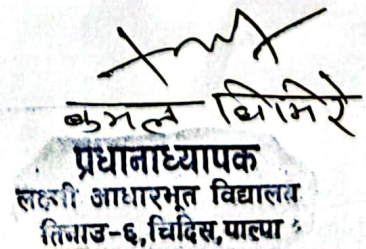 कमल घिमिरे
प्रधानाध्यापक
लक्ष्मी आधारभूत विद्यालय
तिनाउ-६, चिदिस, पाल्पा